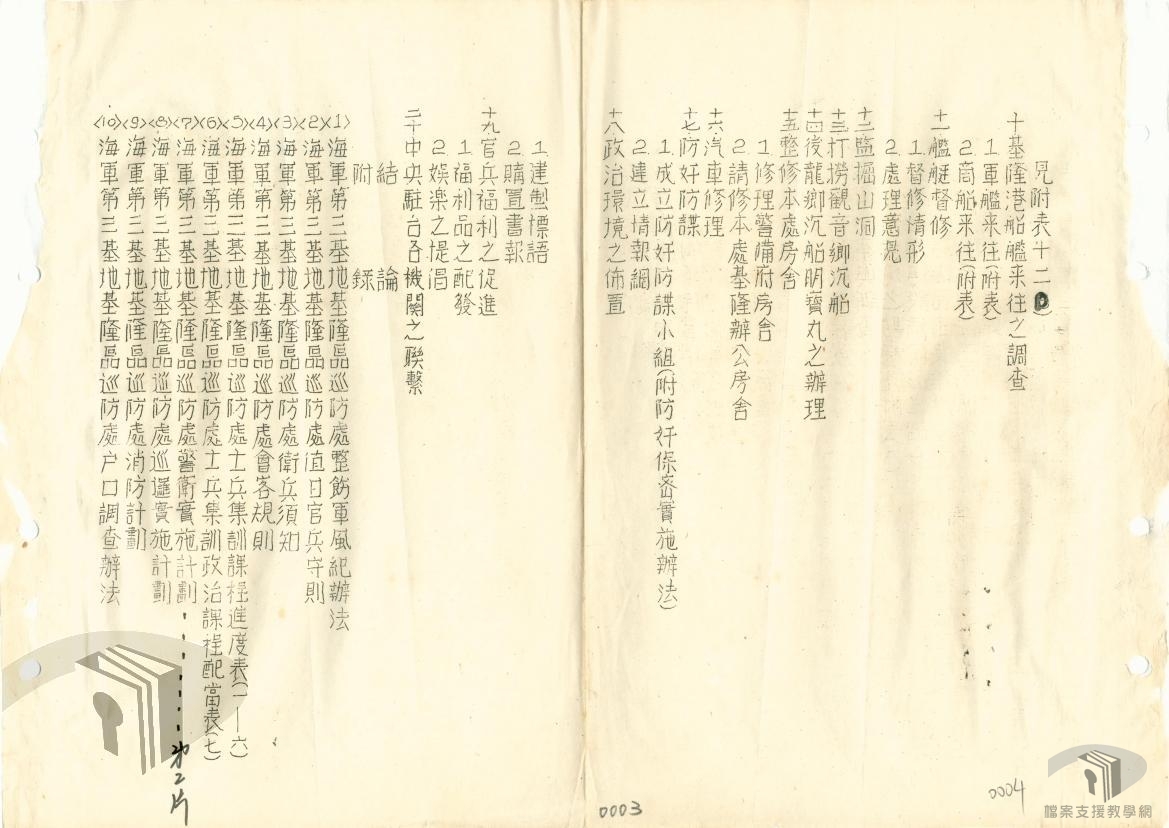 見附表十二)
十基隆港船艦來往之調查
1.軍艦来往(附表)
2.商船来往(附表)
十一艦艇督修
1.督修情形
2.處理意見
十二監掘山洞
十三打撈觀音鄉沉船
十四後龍鄉沉船明寶丸之辦理
十五整修本處房舍
1.修理警備府房舍
2.請修本處基隆辦公房舍
十六汽車修理
十七防奸防諜
1.成立防奸防諜小組(附防奸保密實施辦法)
2.建立情報網
十八政治環境之佈置
1.建製標語
2.購置書報
十九官兵福利之促進
1.福利品之配發
2.娛楽之提倡
二十中央駐台各機關之聯繫
結論
附録
<1>海軍第三基地基隆區巡防處整飭軍風紀辦法
<2>海軍第三基地基隆區巡防處值日官兵守則
<3>海軍第三基地基隆區巡防處衛兵須知
<4>海軍第三基地基隆區巡防處會客規則
<5>海軍第三基地基隆區巡防處士兵集訓課程進度表(一—六)
<6>海軍第三基地基隆區巡防處士兵集訓政治課程配當表(七)
<7>海軍第三基地基隆區巡防處警衛實施計劃......第2片
<8>海軍第三基地基隆區巡防處巡邏實施計劃
<9>海軍第三基地基隆區巡防處消防計劃
<10>海軍第三基地基隆區巡防處户口調查辦法
0004
0003
檔案支援教學網